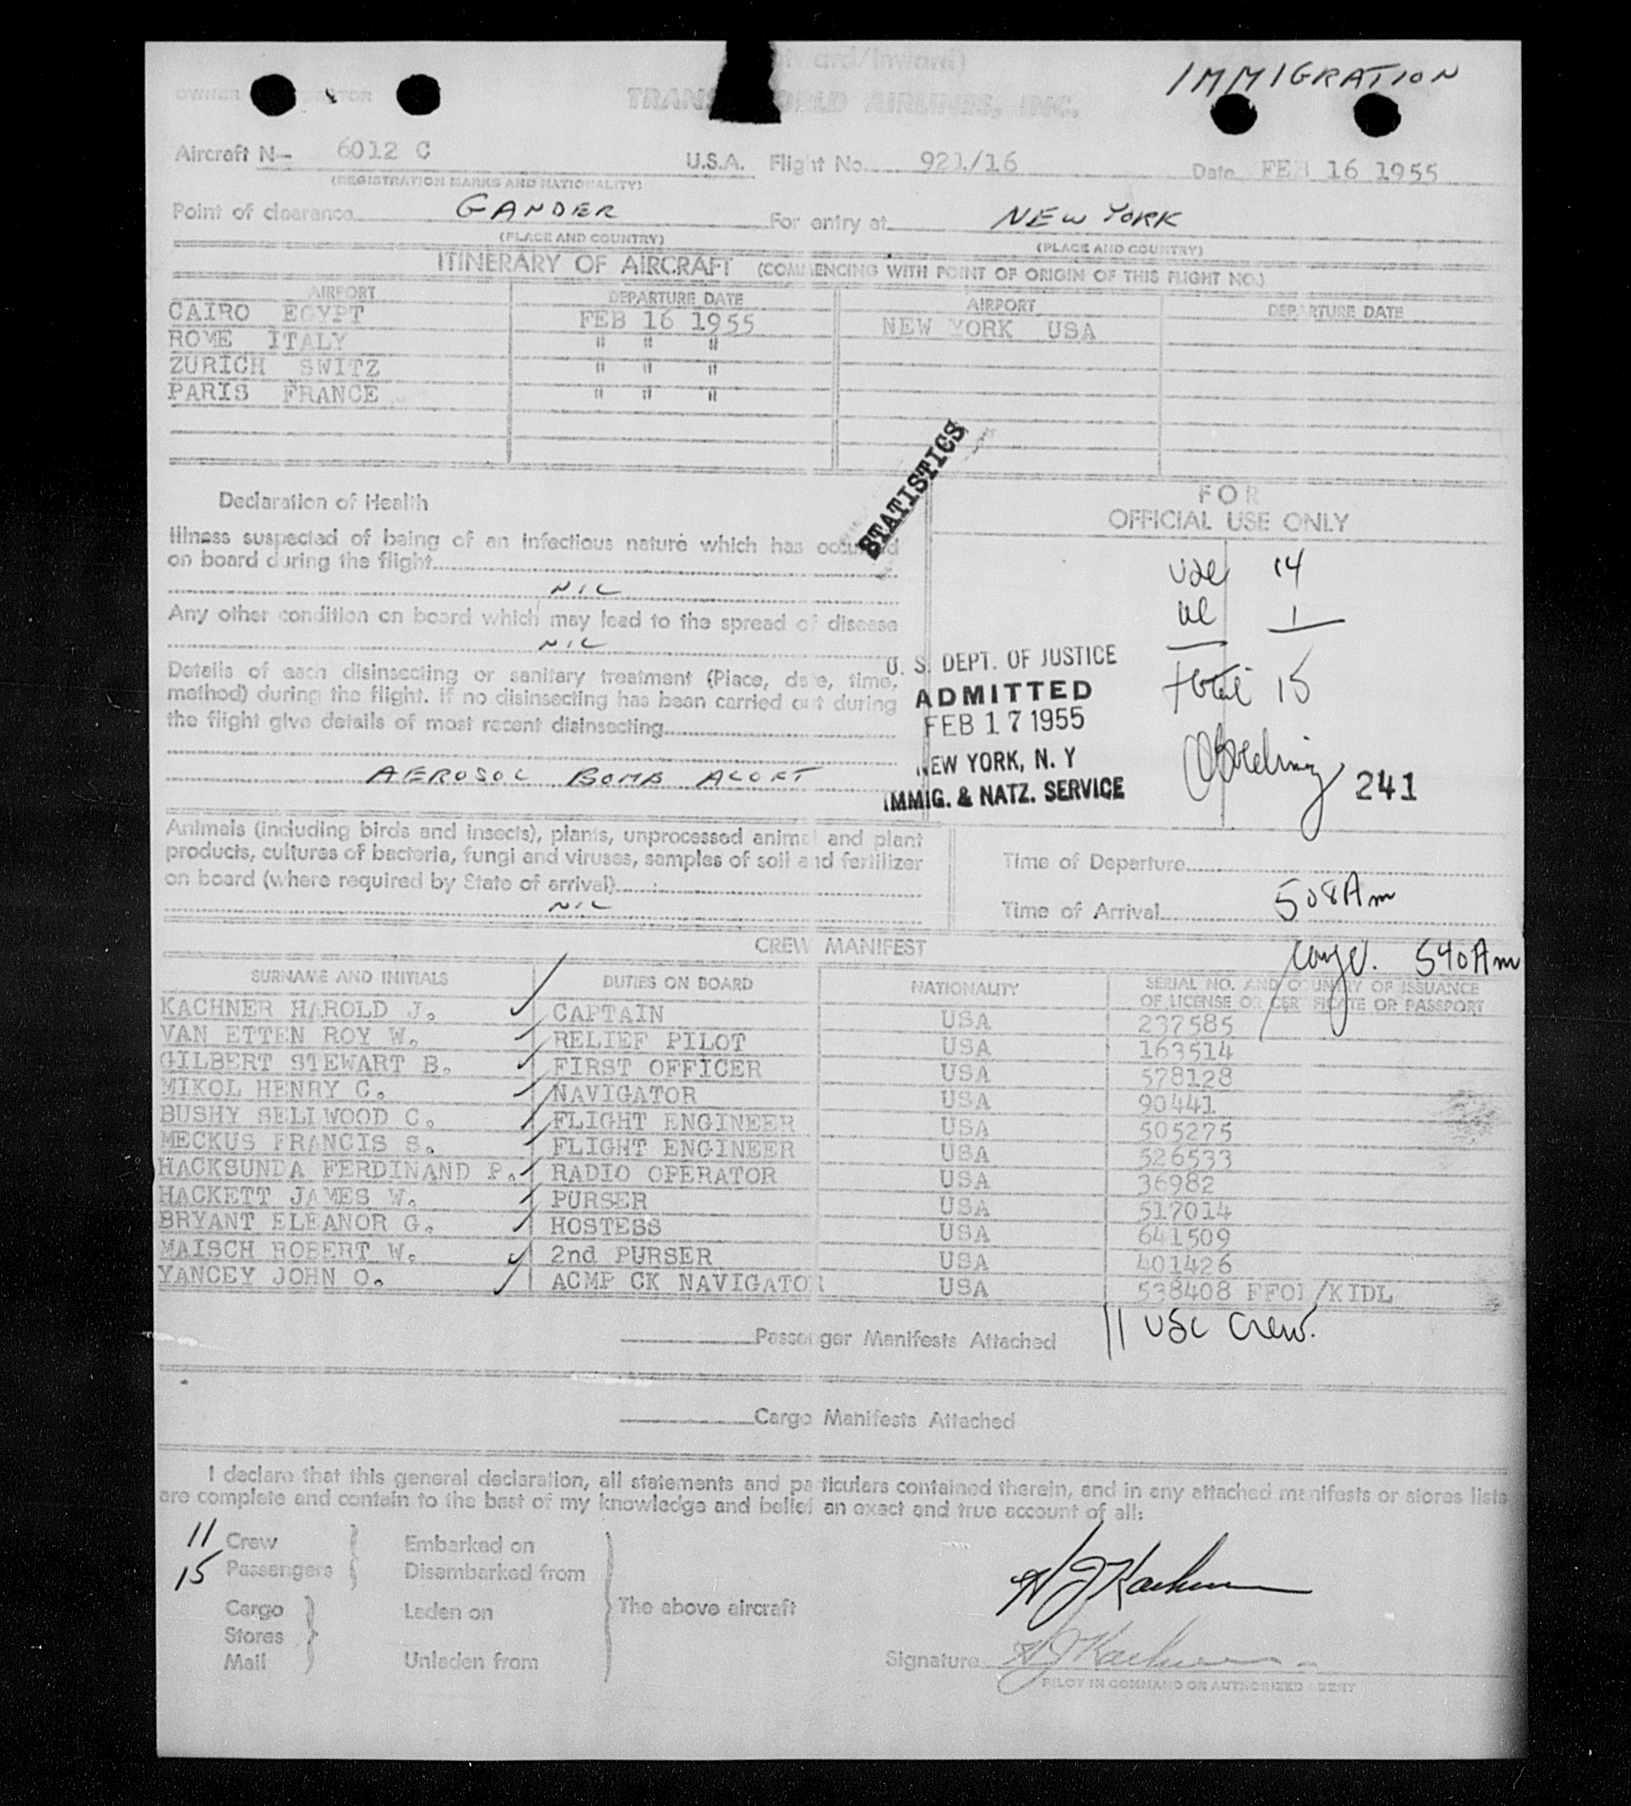 (Outward/Inward)
IMMIGRATION
OWNER OR OPERATOR TRANS WORLD AIRLINES, INC.
Aircraft N- 6012 C U.S.A. Flight No. 921/16 Date FEB 16 1955
(REGISTRATION MARKS AND NATIONALITY)
Point of clearance GANDER For entry at NEW YORK
(PLACE AND COUNTRY) (PLACE AND COUNTRY)
ITINERARY OF AIRCRAFT (COMMENCING WITH POINT OF ORIGIN OF THIS FLIGHT NO.)
AIRPORT DEPARTURE DATE AIRPORT DEPARTURE DATE
CAIRO EGYPT FEB 16 1955 NEW YORK USA
ROME ITALY " " "
ZURICH SWITZ " " "
PARIS FRANCE " " "
STATISTICS
Declaration of Health
Illness suspected of being of an infectious nature which has occurred
on board during the flight
NIL
Any other condition on board which may lead to the spread of disease
NIL
Details of each disinsecting or sanitary treatment (Place, date, time,
method) during the flight. If no disinsecting has been carried out during
the flight give details of most recent disinsecting
AEROSOL BOMB ALOFT
FOR
OFFICIAL USE ONLY
14
1
total 15
U. S. DEPT. OF JUSTICE
ADMITTED
FEB 17 1955
NEW YORK, N. Y
IMMIG. & NATZ. SERVICE
241
Animals (including birds and insects), plants, unprocessed animal and plant
products, cultures of bacteria, fungi and viruses, samples of soil and fertilizer
on board (where required by State of arrival)
NIL
Time of Departure
Time of Arrival 508 Am
540 Am
CREW MANIFEST
SURNAME AND INITIALS DUTIES ON BOARD NATIONALITY SERIAL NO. AND COUNTRY OF ISSUANCE
OF LICENSE OR CERTIFICATE OR PASSPORT
KACHNER HAROLD J. CAPTAIN USA 237585
VAN ETTEN ROY W. RELIEF PILOT USA 163514
GILBERT STEWART B. FIRST OFFICER USA 578128
MIKOL HENRY C. NAVIGATOR USA 90441
BUSHY SELLWOOD C. FLIGHT ENGINEER USA 505275
MECKUS FRANCIS S. FLIGHT ENGINEER USA 526533
HACKSUNDA FERDINAND P. RADIO OPERATOR USA 36982
HACKETT JAMES W. PURSER USA 517014
BRYANT ELEANOR G. HOSTESS USA 641509
MAISCH ROBERT W. 2nd PURSER USA 401426
YANCEY JOHN O. ACMP CK NAVIGATOR USA 538408 /KIDL
Passenger Manifests Attached 11 USC Crew.
Cargo Manifests Attached
I declare that this general declaration, all statements and particulars contained therein, and in any attached manifests or stores lists
are complete and contain to the best of my knowledge and belief an exact and true account of all:
11 Crew Embarked on
15 Passengers Disembarked from
Cargo Laden on The above aircraft
Stores
Mail Unladen from
H J Kachner
Signature H J Kachner
PILOT IN COMMAND OR AUTHORIZED AGENT